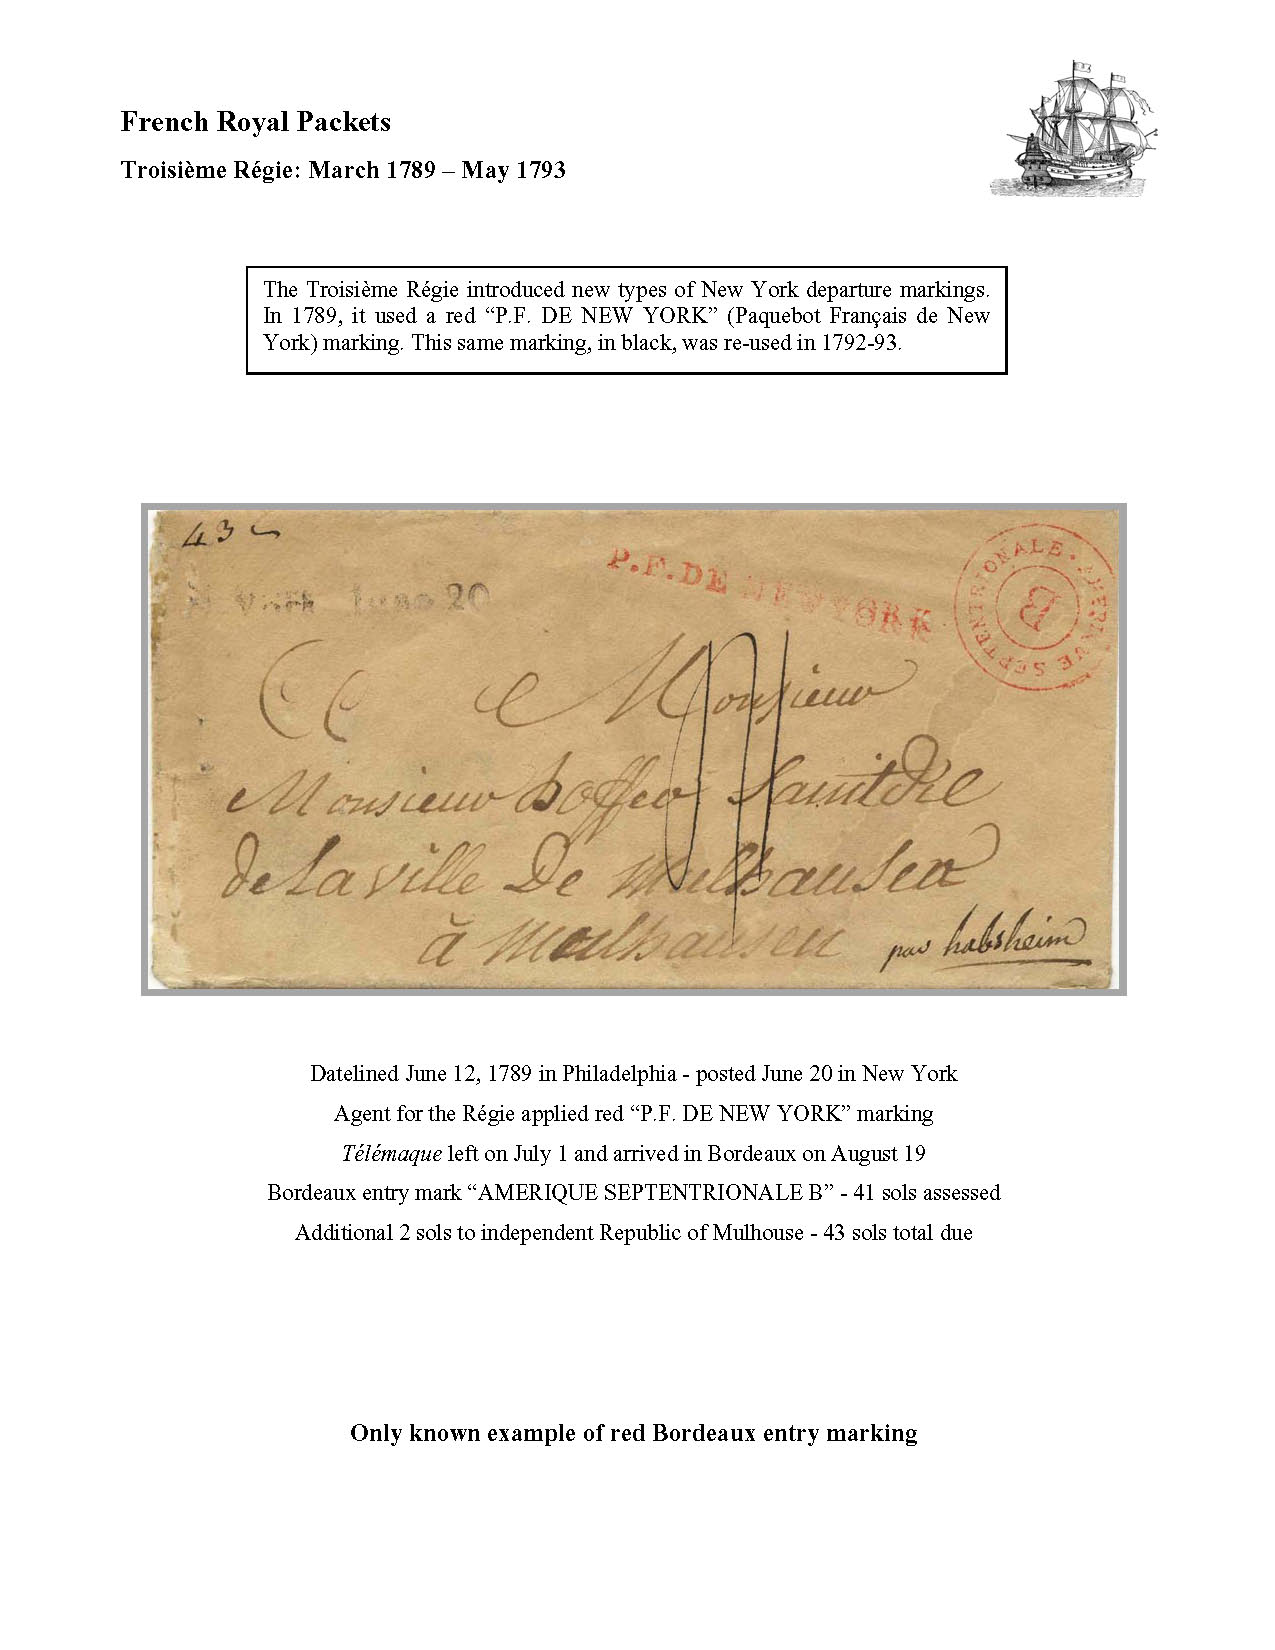 French Royal Packets
Troisième Régie: March 1789 – May 1793
The Troisième Régie introduced new types of New York departure markings.
In 1789, it used a red “P.F. DE NEW YORK” (Paquebot Français de New
York) marking. This same marking, in black, was re-used in 1792-93.
43
P.F. DE NEW YORK
AMERIQUE SEPTENTRIONALE · B
York June 20
Monsieur
Monsieur
de La ville De Mulhausen
à Mulhausen
par habsheim
Datelined June 12, 1789 in Philadelphia - posted June 20 in New York
Agent for the Régie applied red “P.F. DE NEW YORK” marking
Télémaque left on July 1 and arrived in Bordeaux on August 19
Bordeaux entry mark “AMERIQUE SEPTENTRIONALE B” - 41 sols assessed
Additional 2 sols to independent Republic of Mulhouse - 43 sols total due
Only known example of red Bordeaux entry marking